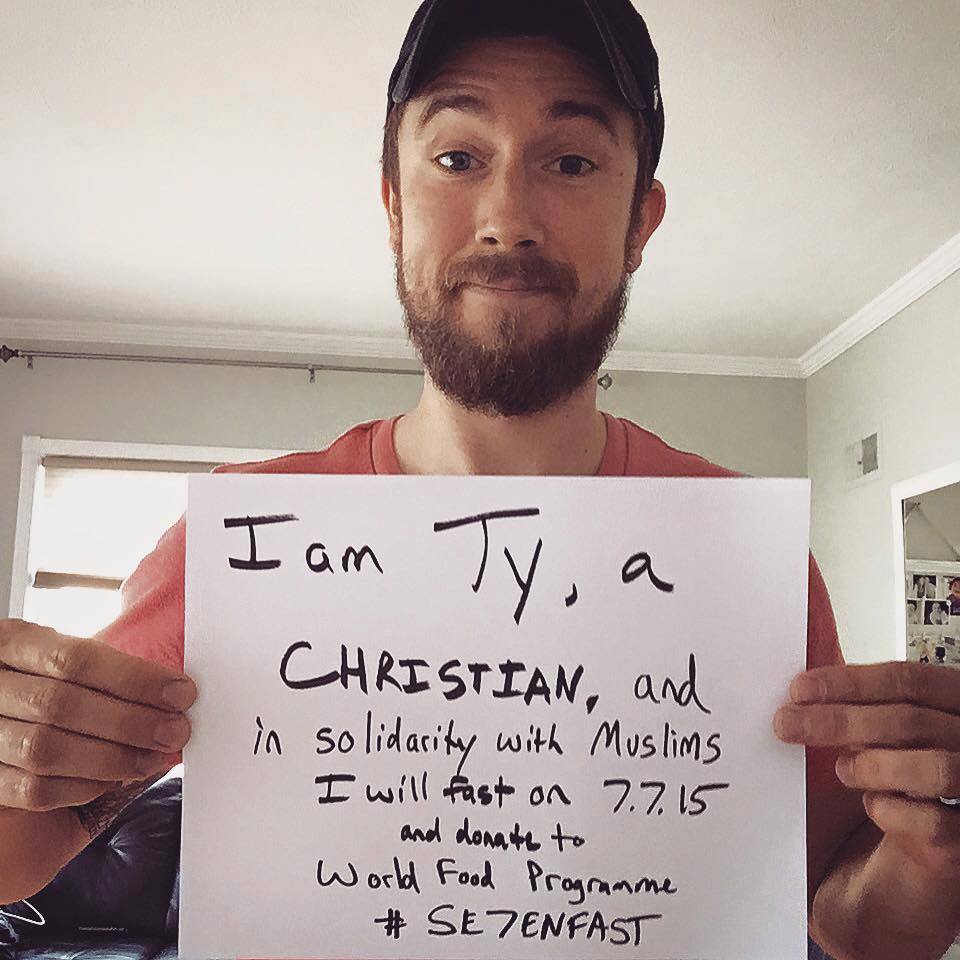 I am Ty, a
CHRISTIAN, and
in solidarity with Muslims
I will fast on 7.7.15
and donate to
World Food Programme
# SE7ENFAST